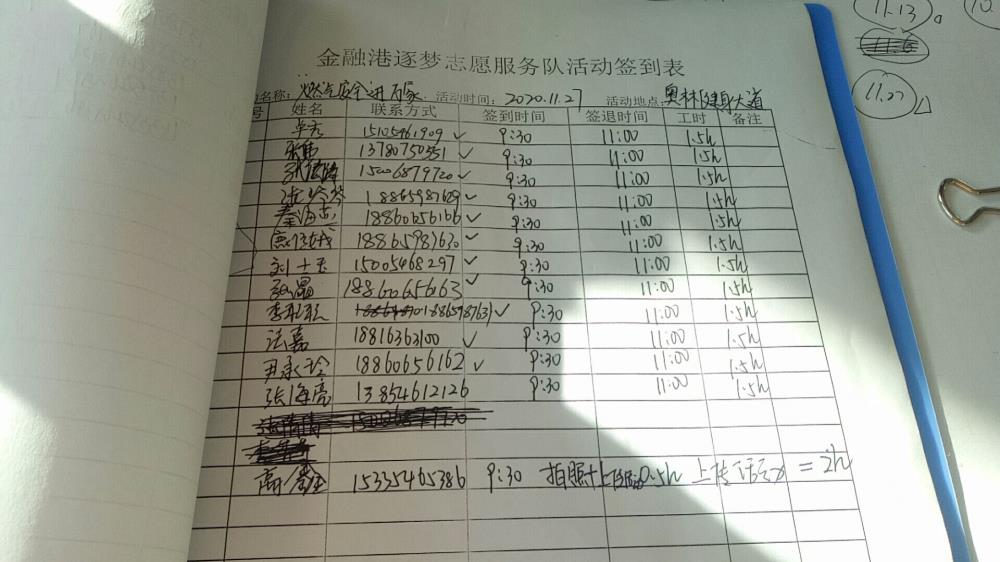 金融港逐梦志愿服务队活动签到表
名称: 燃气安全进万家 活动时间: 2020.11.27 活动地点: 奥林健身大道
号 姓名 联系方式 签到时间 签退时间 工时 备注
15105461909 ✓ 9:30 11:00 1.5h
13780750551 ✓ 9:30 11:00 1.5h
15006879720 ✓ 9:30 11:00 1.5h
18865987629 ✓ 9:30 11:00 1.5h
18860656166 ✓ 9:30 11:00 1.5h
18865987630 ✓ 9:30 11:00 1.5h
刘士玉 15005468297 ✓ 9:30 11:00 1.5h
18860656163 ✓ 9:30 11:00 1.5h
✓ 9:30 11:00 1.5h
汪嘉 18816363100 ✓ 9:30 11:00 1.5h
尹承玲 18860656162 ✓ 9:30 11:00 1.5h
张海亮 13854612126 9:30 11:00 1.5h
15335465386 9:30 拍照+ 0.5h 上传活动 = 2h
11.13
11.27